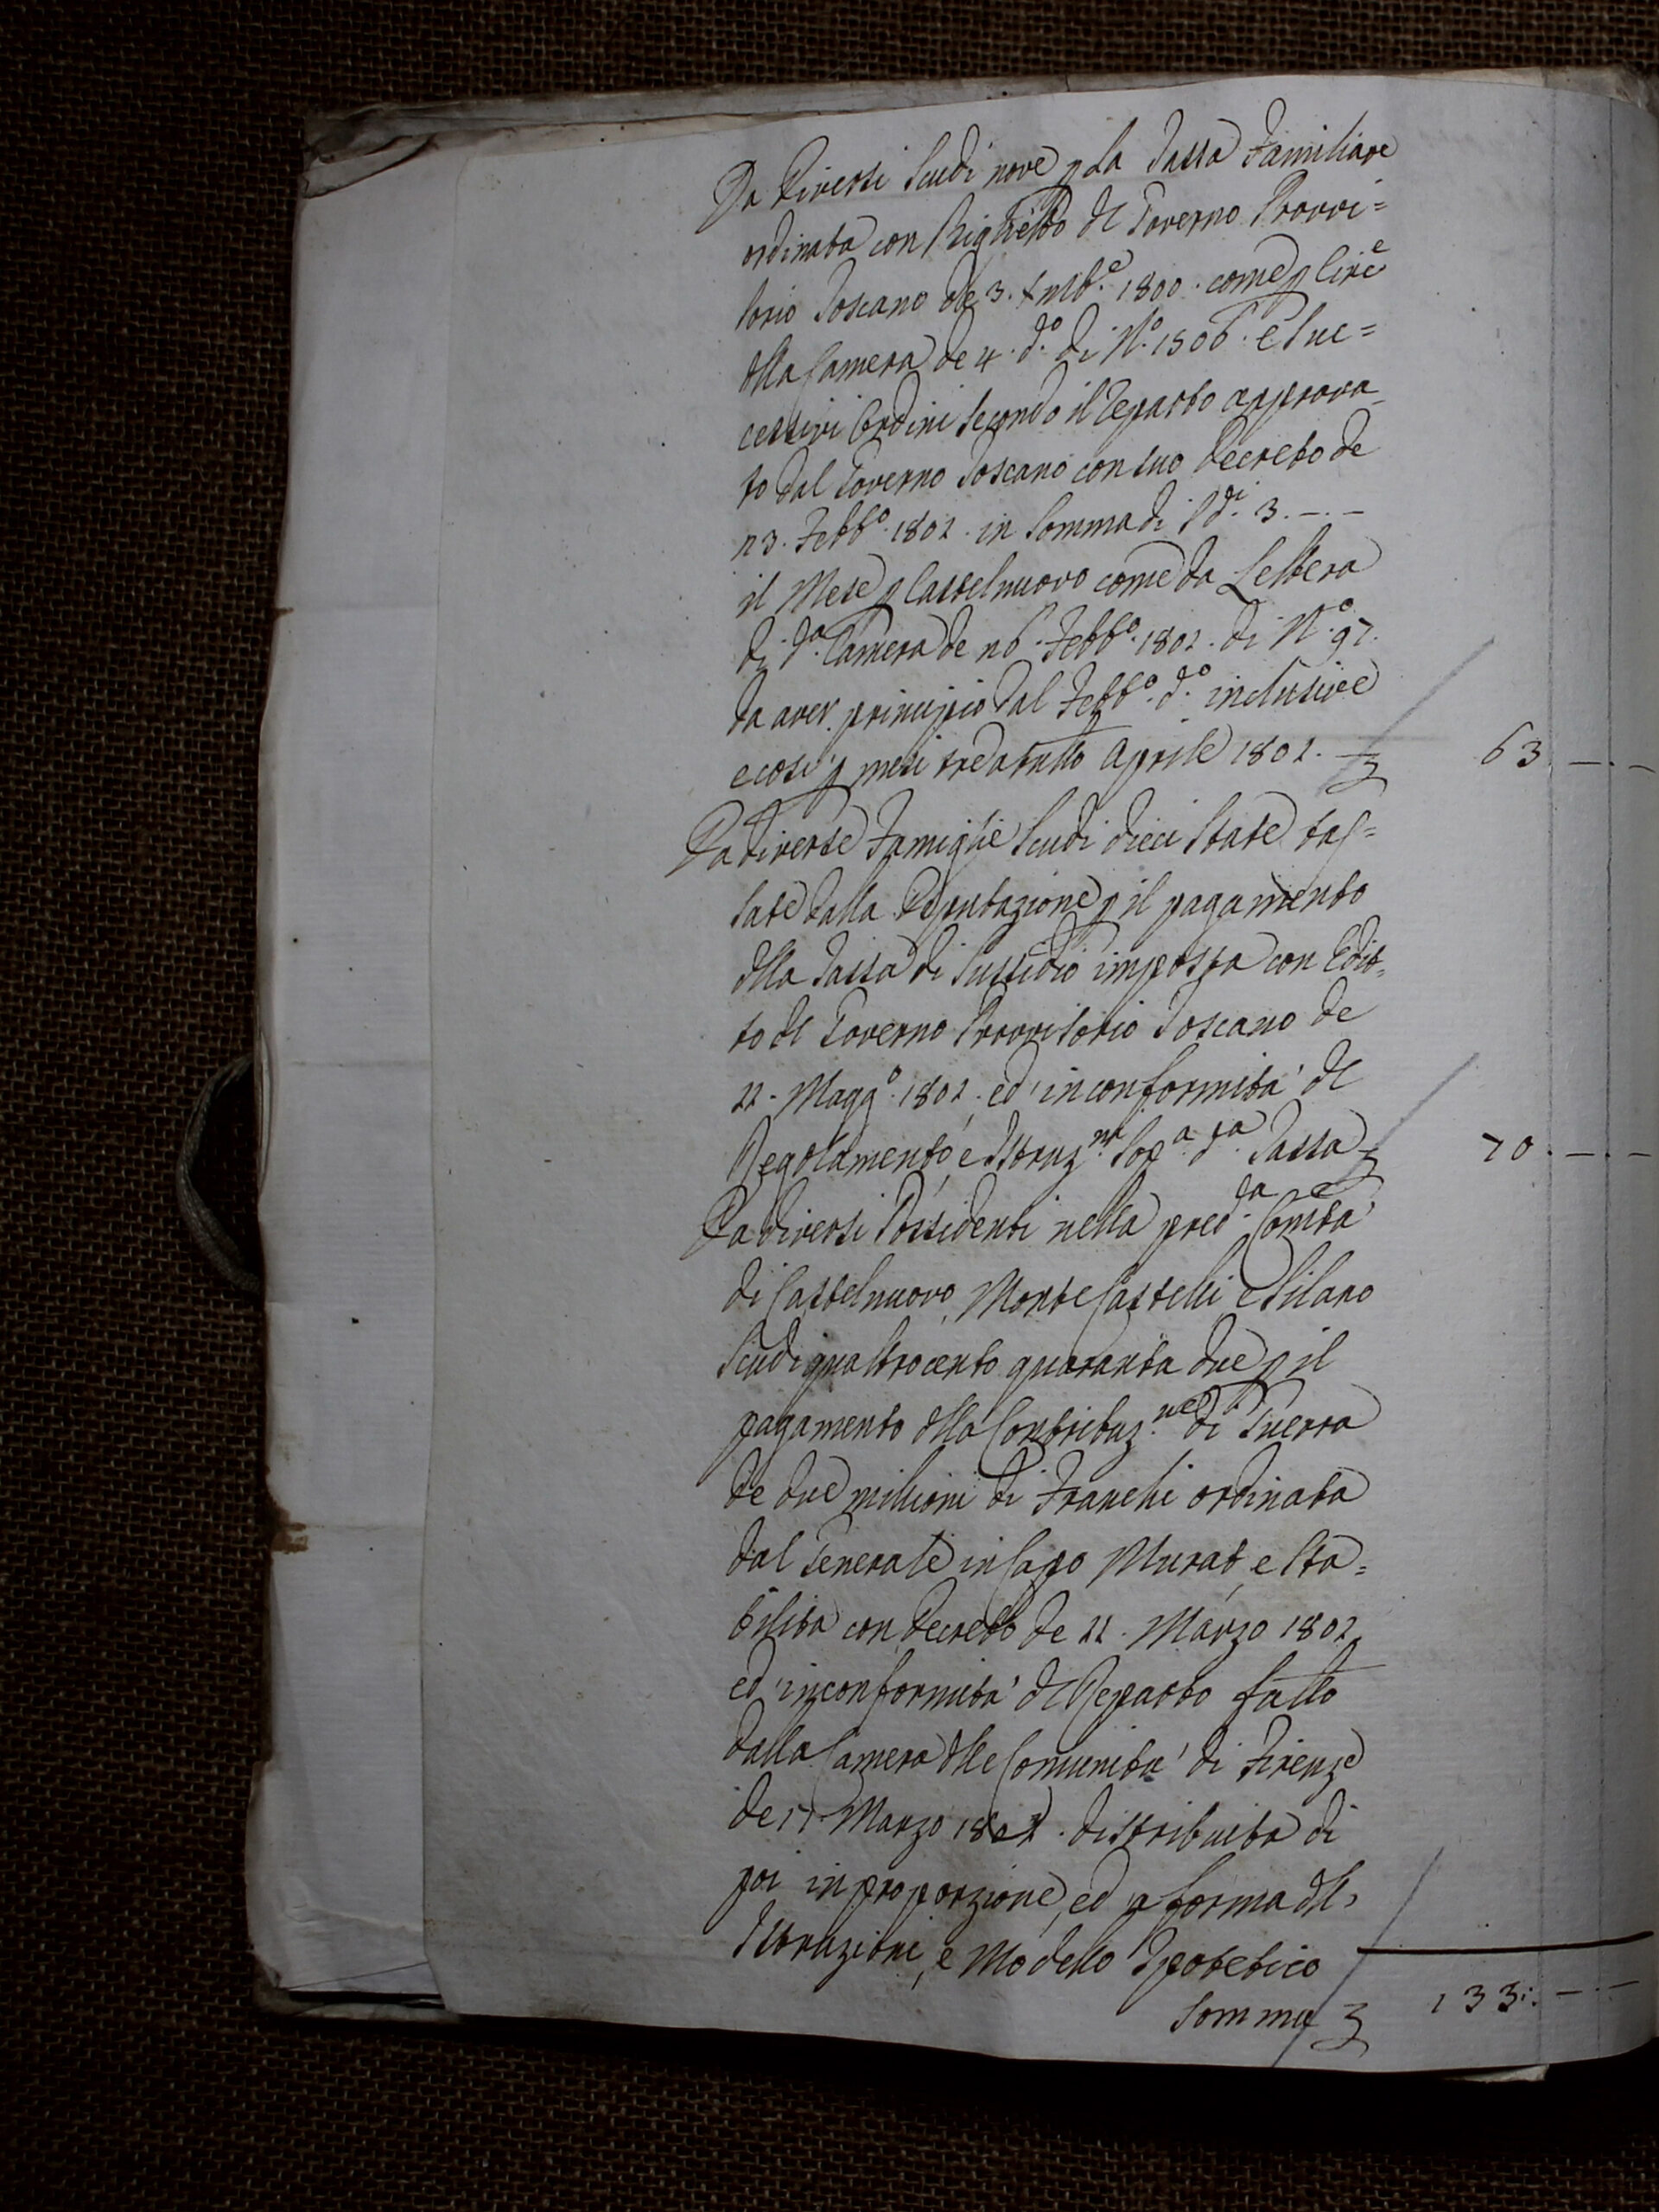 Da Diversi Scudi nove p la Tassa Familiare
ordinata con Biglietto del Governo Provvi=
sorio Toscano de 3. Xmb.e 1800. come p Circe
della Camera de 4. d.o di N.o 1506. e suc=
cessivi Ordini secondo il Reparto approva
to dal Governo Toscano con suo Decreto de
23. Febb.o 1801. in Somma di S.di 3.-.-
il Mese p Castelnuovo come da Lettera
di d.a Camera de 26. Febb.o 1801. di N.o 97.
da aver principio dal Febb.o d.o inclusive
e cosi p mesi tre a tutto Aprile 1801. 63.-.-
Da diverse Famiglie Scudi dieci State tas=
sate dalla Deputazione p il pagamento
della Tassa di Sussidio imposta con Edit=
to del Governo Provvisorio Toscano de
22. Magg.o 1801. ed in conformità del
Regolamento, e Istruz.ni Sop.a d.a Tassa 70.-.-
Da diversi Possidenti nella pred.da Comtà
di Castelnuovo, Monte Castelli e Silano
Scudi quattrocento quaranta due p il
pagamento della Contribuz.ne di Guerra
de due millioni di Franchi ordinata
dal Generale in Capo Murat, e Sta=
bilita con Decreto de 22. Marzo 1801
ed in conformità del Reparto fatto
dalla Camera delle Comunità di Firenze
de Marzo 1801. distribuita di
poi in proporzione, ed a forma dell'
Istruzioni, e Modello Ipotetico
Somma 133:.-.-